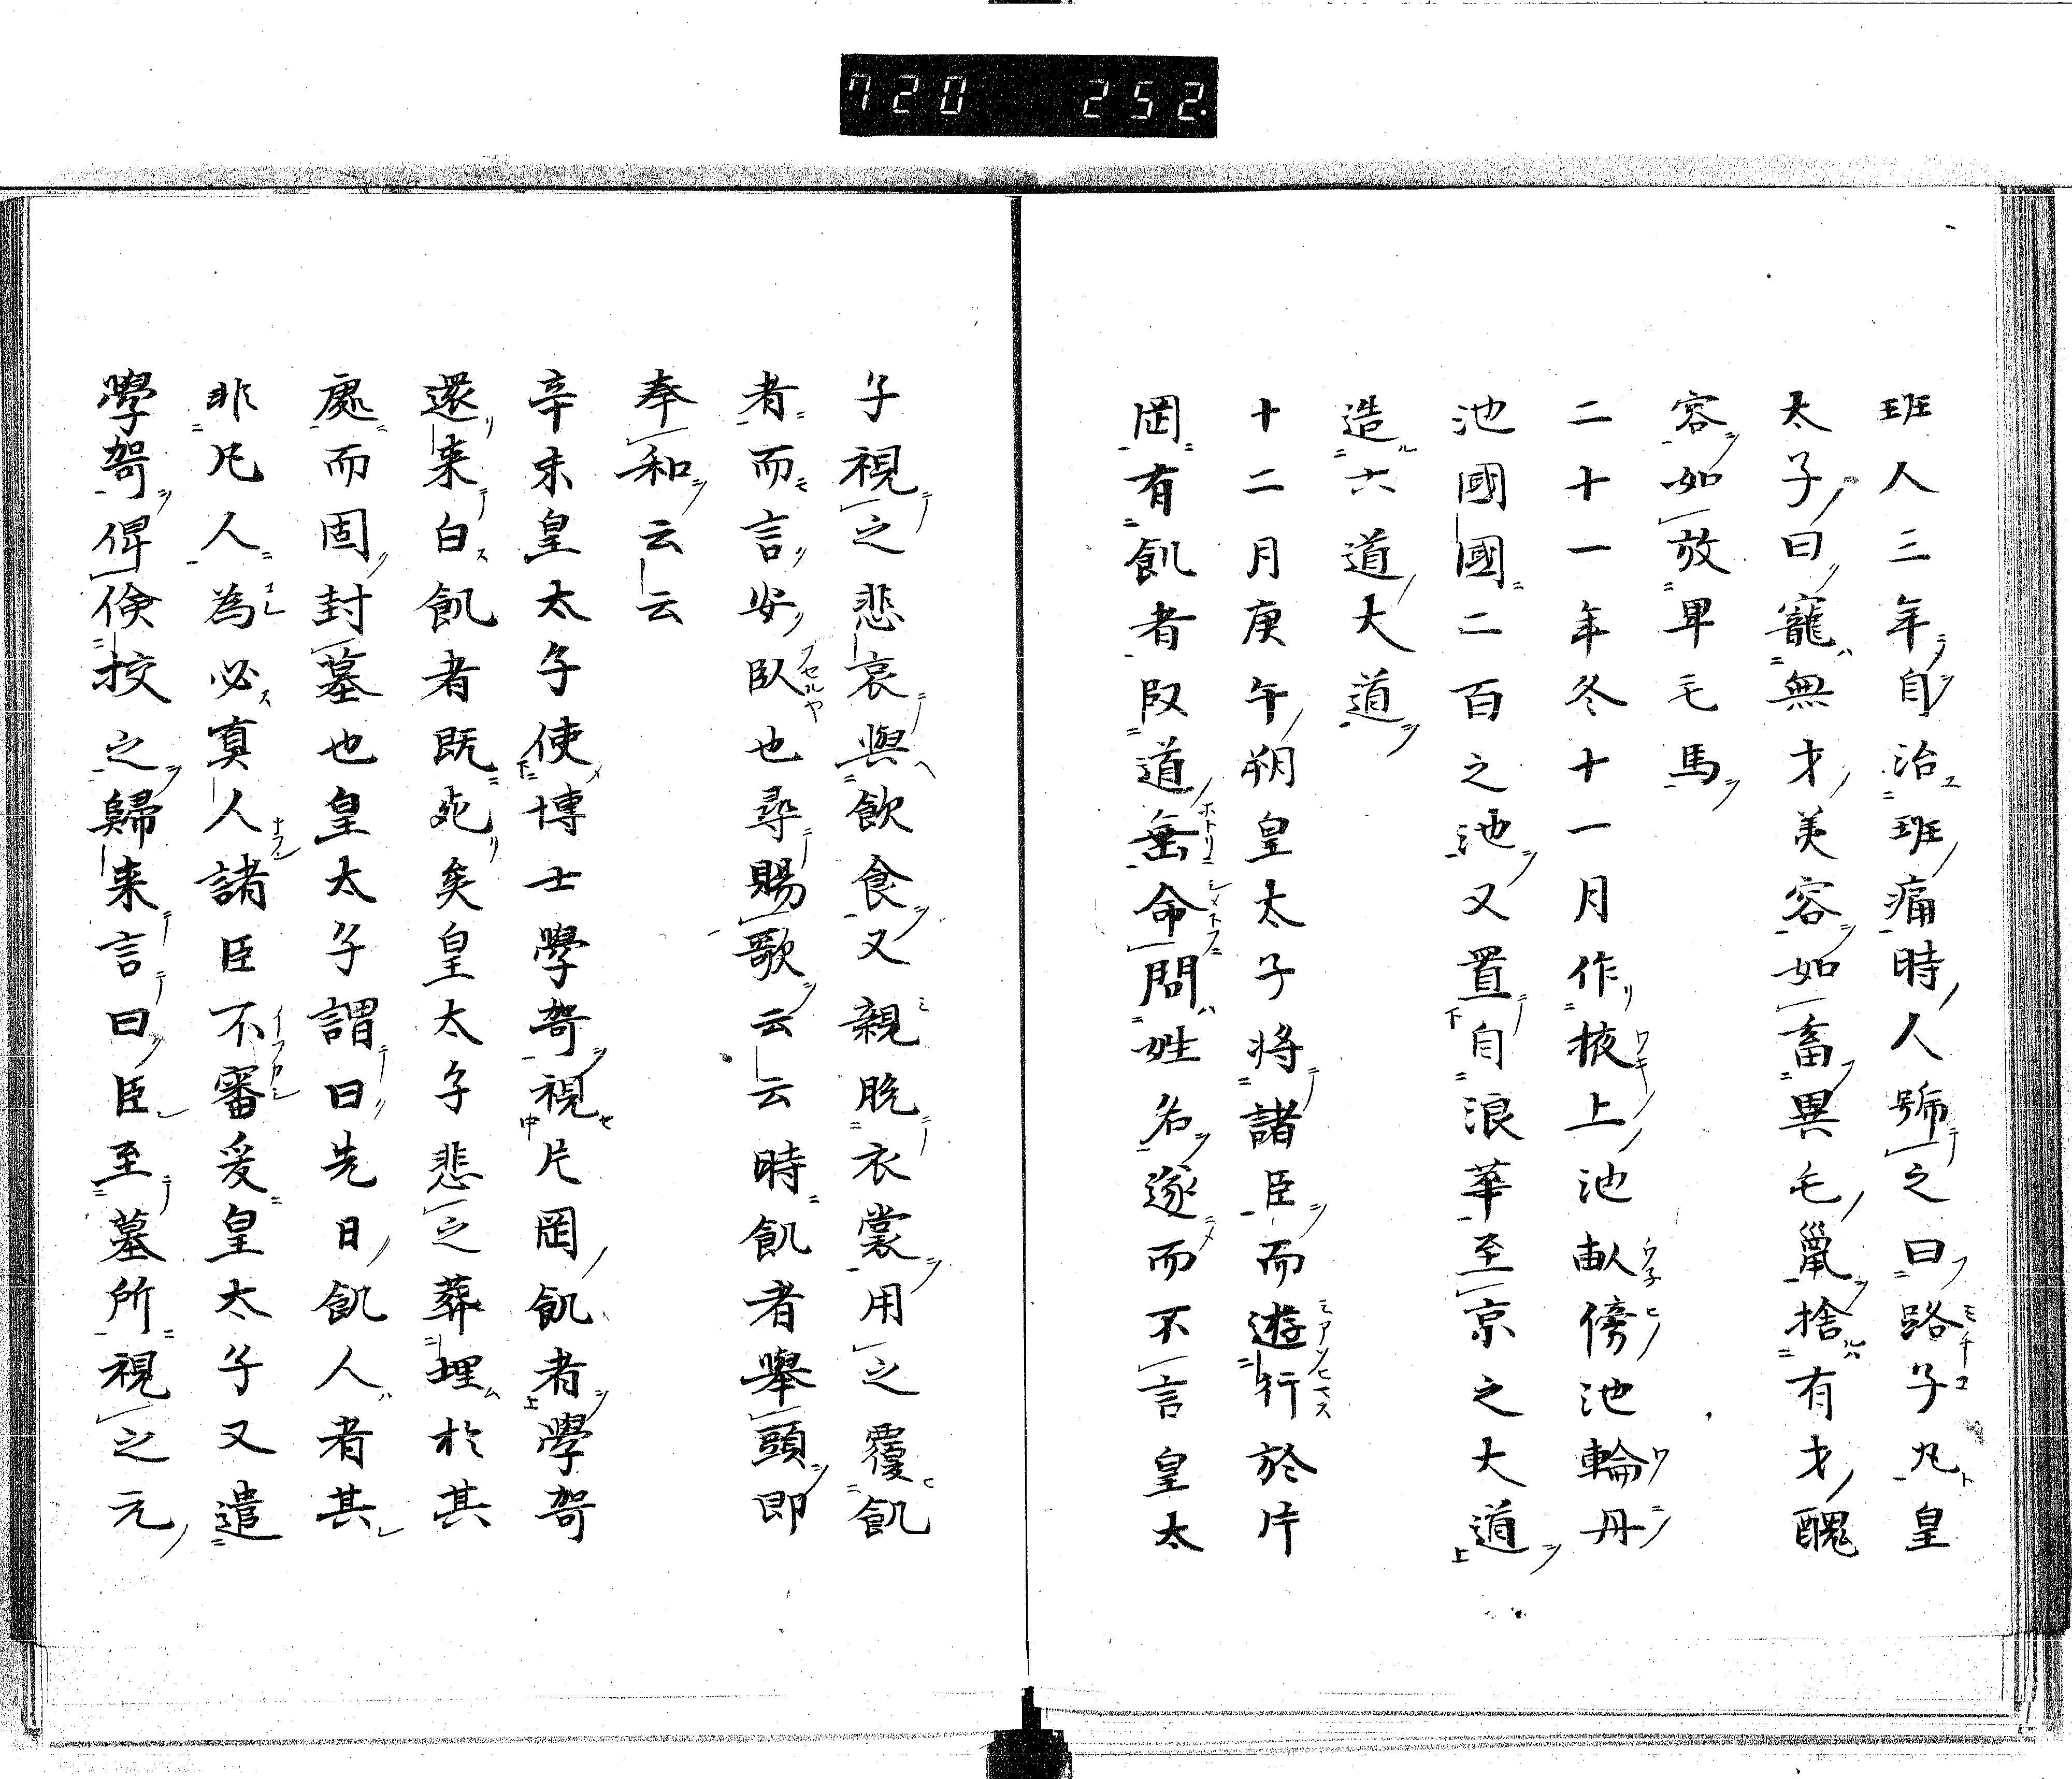 720 252
班人三年自治班痛時人號之曰路子凡皇
太子曰寵無才美容如畜異毛鼠捨有才醜
容如放卑毛馬
二十一年冬十一月作掖上池畝傍池輪丹
池國國二百之池又置自浪華至京之大道
造六道大道
十二月庚午朔皇太子將諸臣而遊行於片
岡有飢者臥道垂命問姓名遂而不言皇太
子視之悲哀與飲食又親脱衣裳用之覆飢
者而言安臥也尋賜歌云云時飢者舉頭即
奉和云云
辛未皇太子使博士學哿視片岡飢者學哿
還来白飢者既死矣皇太子悲之葬埋於其
處而固封墓也皇太子謂曰先日飢人者其
非凡人為必真人諸臣不審爰皇太子又遣
學哿俾儉挍之歸来言曰臣至墓所視之元